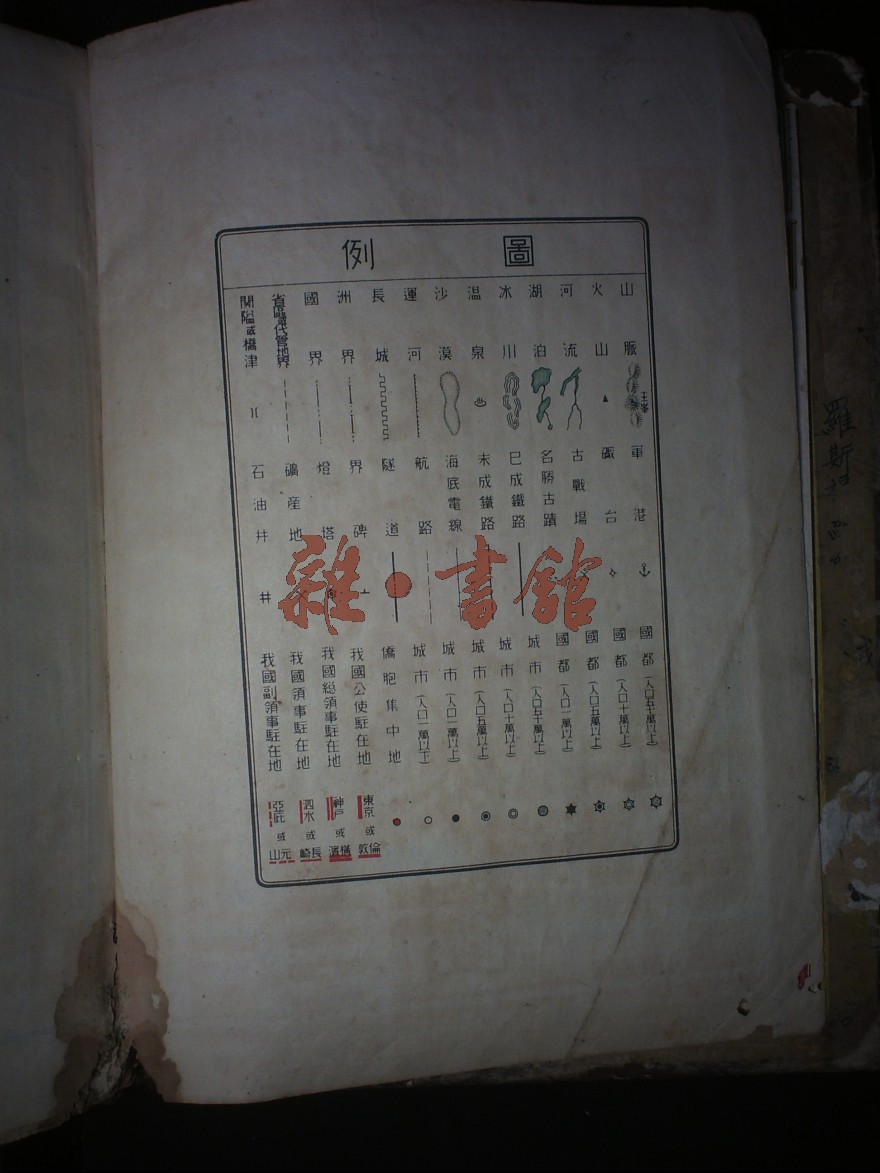 圖例
山脈
主峯
火山
河流
湖泊
冰川
温泉
沙漠
運河
長城
洲界
國界
省區或代管地界
關隘或橋津
軍港
砲台
古戰場
名勝古蹟
已成鐵路
未成鐵路
海底電線
航路
隧道
界碑
燈塔
礦產地
石油井
井
國都(人口五十萬以上)
國都(人口十萬以上)
國都(人口五萬以上)
國都(人口一萬以上)
城市(人口五十萬以上)
城市(人口十萬以上)
城市(人口五萬以上)
城市(人口一萬以上)
城市(人口一萬以下)
僑胞集中地
我國公使駐在地
東京或倫敦
我國總領事駐在地
神戶或橫濱
我國領事駐在地
泗水或長崎
我國副領事駐在地
亞庇或元山
雜·書館
羅斯